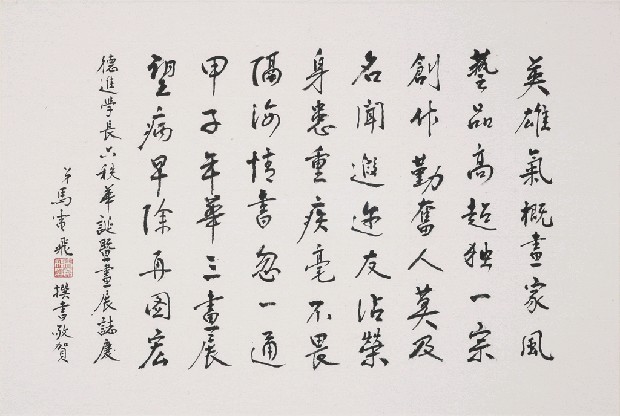 英雄氣概畫家風
藝品高超独一宗
創作勤奮人莫及
名聞遐迩友沾榮
身患重疾毫不畏
隔海情書忽一通
甲子年華三畫展
望病早除再图宏
德進学長六秩華誕暨畫展誌慶
弟馬飛 撰書敬賀